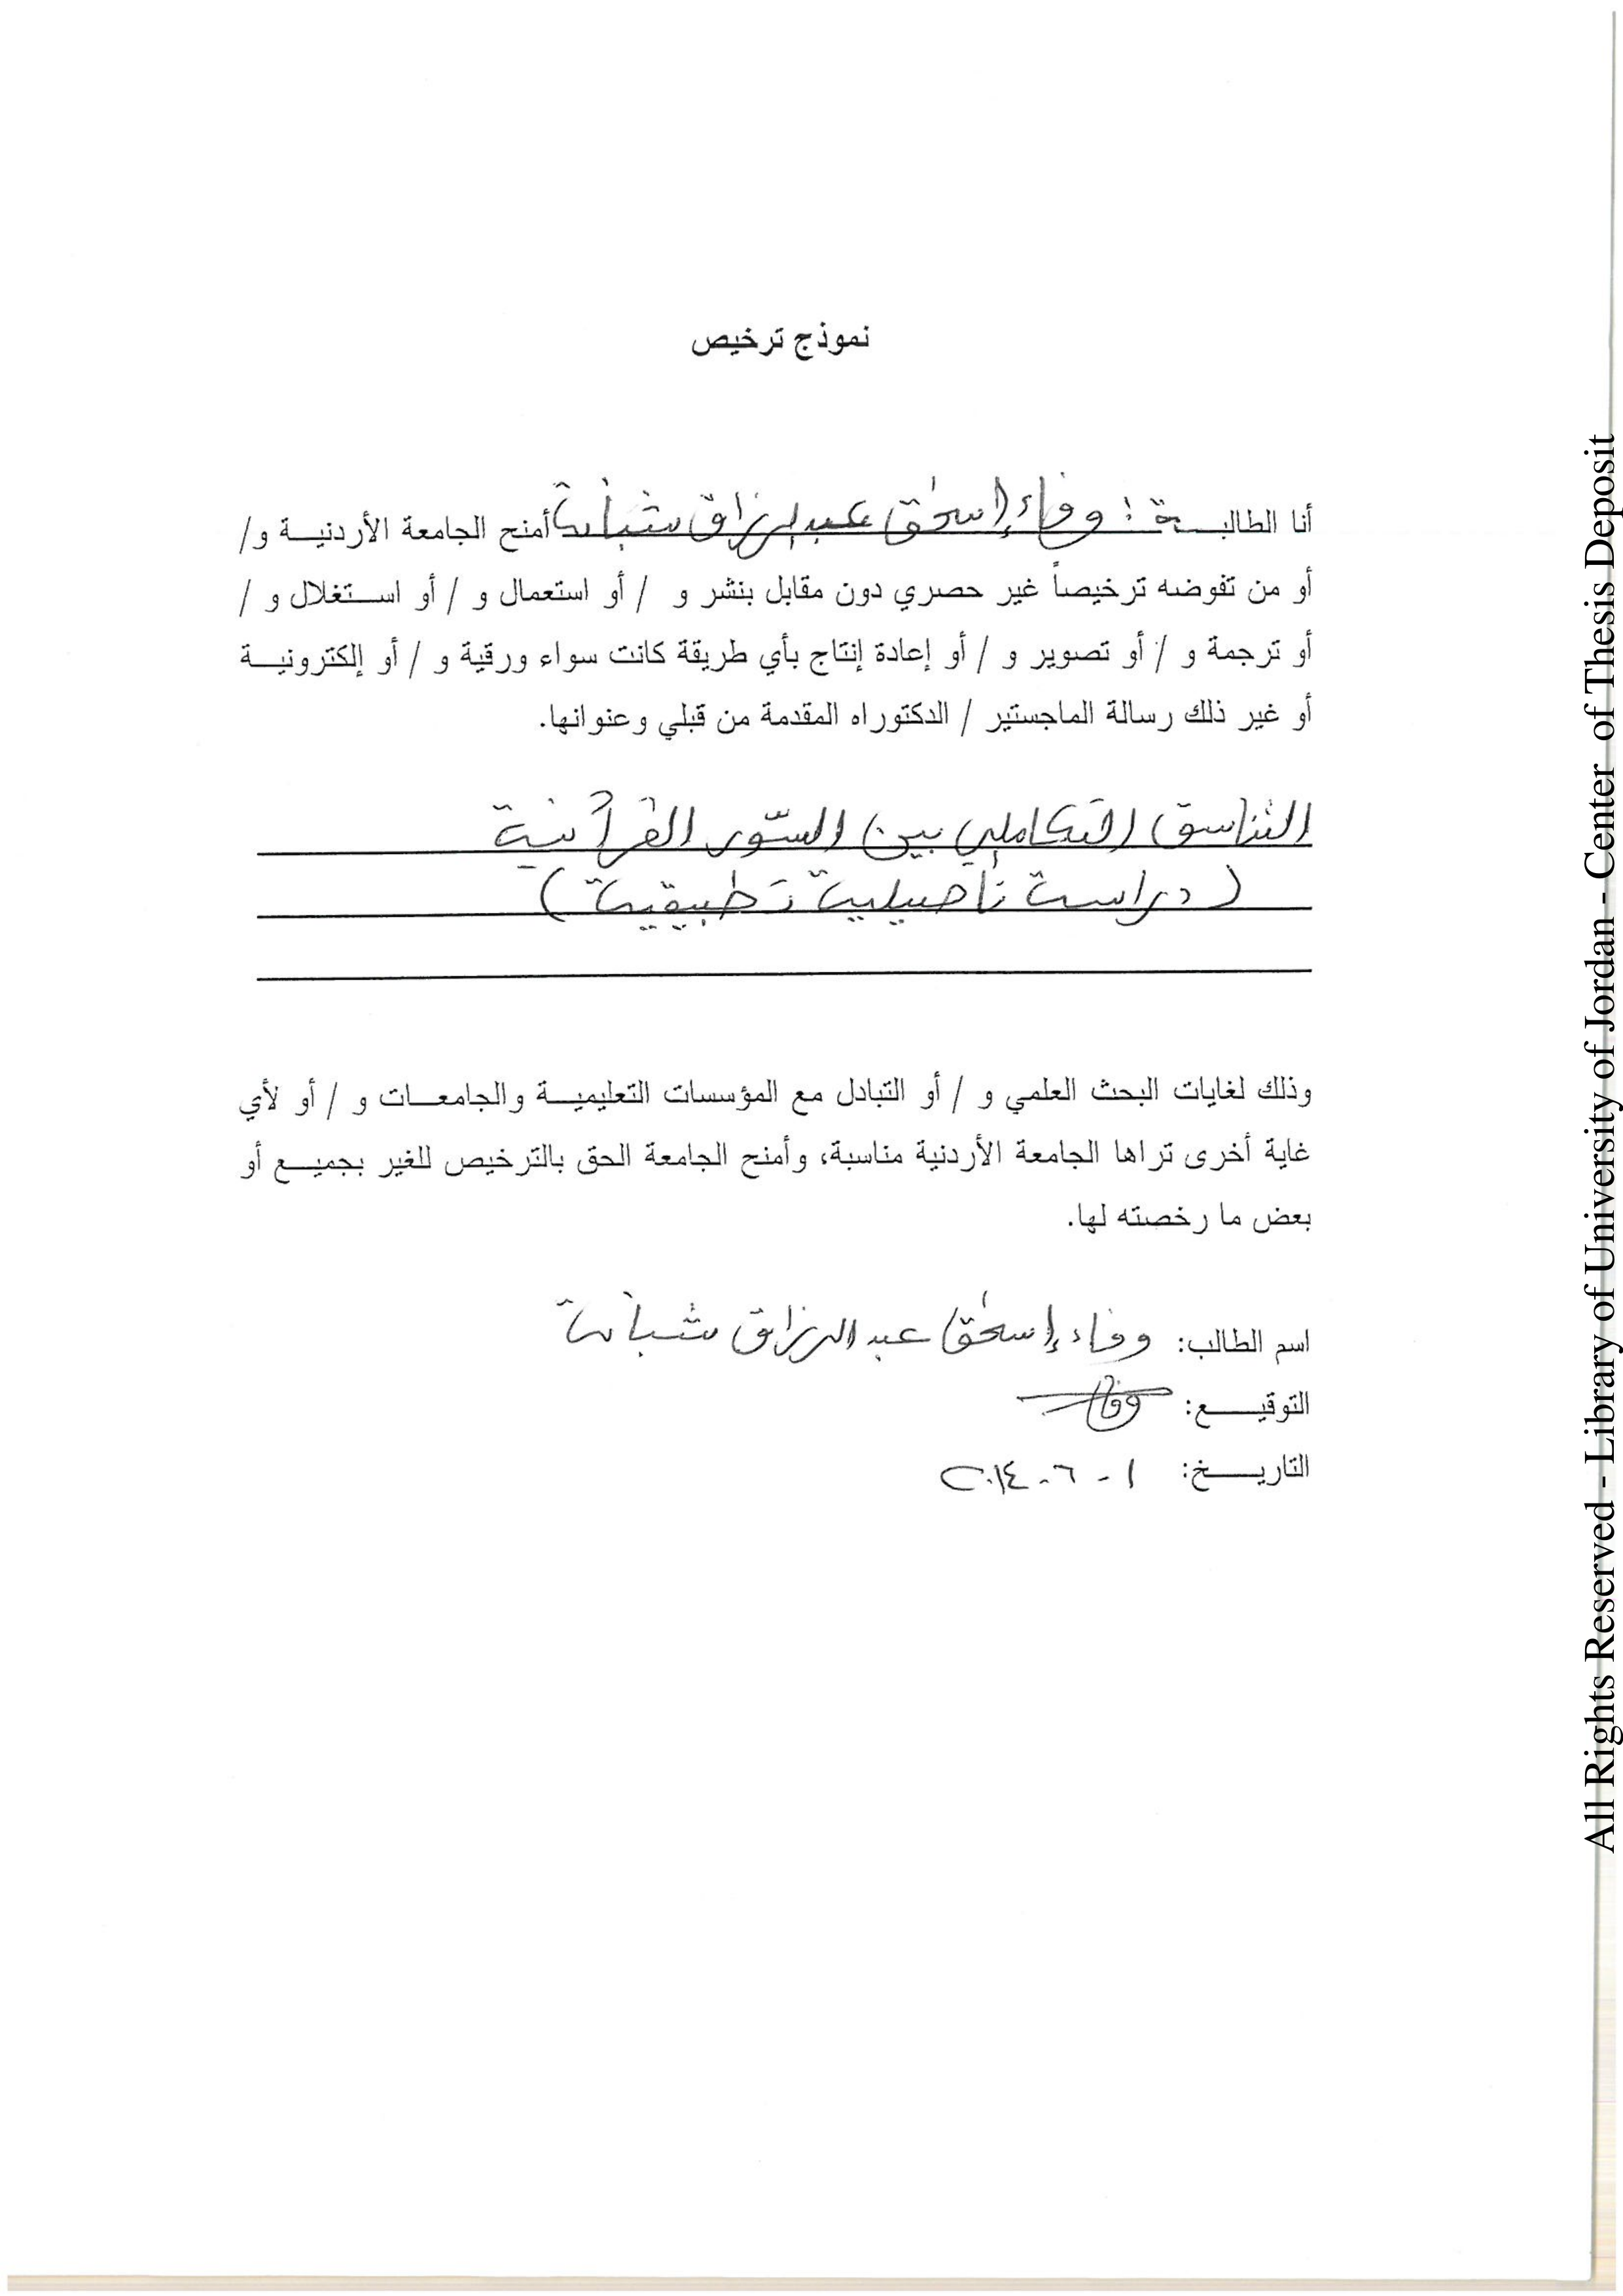 نموذج ترخيص
أنا الطالبة: وفاء إسحق عبد الرزاق شبانة أمنح الجامعة الأردنية و/
أو من تفوضه ترخيصاً غير حصري دون مقابل بنشر و / أو استعمال و / أو استغلال و /
أو ترجمة و / أو تصوير و / أو إعادة إنتاج بأي طريقة كانت سواء ورقية و / أو إلكترونية
أو غير ذلك رسالة الماجستير / الدكتوراه المقدمة من قبلي وعنوانها.
التناسق التكاملي بين السّور القرآنية
(دراسة تأصيلية تطبيقية)
وذلك لغايات البحث العلمي و / أو التبادل مع المؤسسات التعليمية والجامعات و / أو لأي
غاية أخرى تراها الجامعة الأردنية مناسبة، وأمنح الجامعة الحق بالترخيص للغير بجميع أو
بعض ما رخصته لها.
اسم الطالب: وفاء إسحق عبد الرزاق شبانة
التوقيع: وفاء
التاريخ: ١ - ٦ - ٢٠١٤
All Rights Reserved - Library of University of Jordan - Center of Thesis Deposit